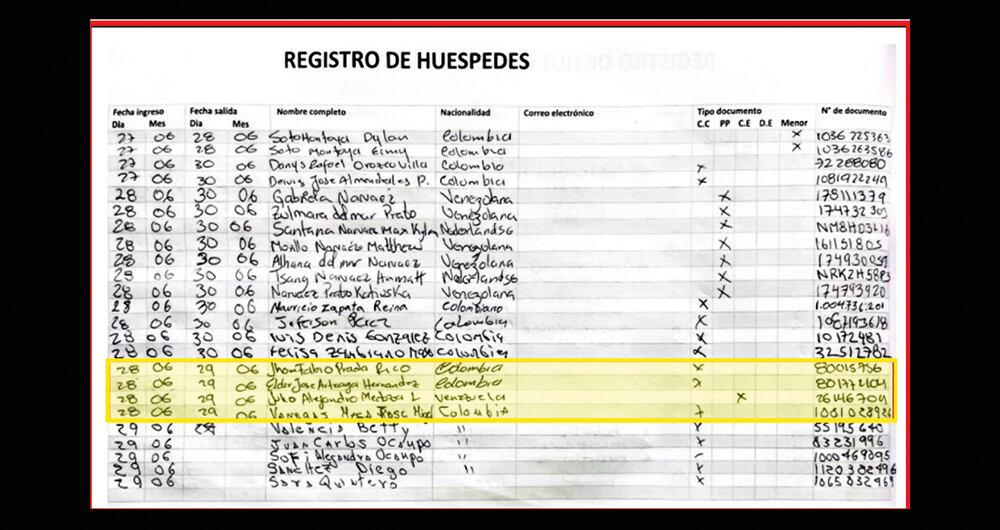 REGISTRO DE HUESPEDES
Fecha ingreso Fecha salida Nombre completo Nacionalidad Correo electrónico Tipo documento N° de documento
Dia Mes Dia Mes C.C PP C.E D.E Menor
27 06 28 06 Soto Montoya Dylan Colombia X 1036 225363
27 06 28 06 Soto Montoya Eimy Colombia X 1036263586
27 06 30 06 Danys Rafael Orozco Villa Colombia X 72288080
27 06 30 06 Denis Jose Almendrales P. Colombia X 1081922249
28 06 30 06 Gabriela Narvaez Venezolana X 178111379
28 06 30 06 Zulmara del mar Prato Venezolana X 174732303
28 06 30 06 Santana Narvaez Max Nederlandse X
28 06 30 06 Morillo Narvaez Matthew Venezolana X 161151805
28 06 30 06 Alhana del mar Narvaez Venezolana X 174930059
28 06 30 06 Tsang Narvaez X
28 06 30 06 Narvaez Prato Venezolana X 174793920
28 06 30 06 Mauricio Zapata Reina Colombiano X 1.004736.201
28 06 30 06 Jeferson Colombia X 1087193618
28 06 30 06 Luis Denis Gonzalez Colombia X 10172481
28 06 30 06 Colombia X 32512782
28 06 29 06 Jhon Fabio Prada Rico Colombia X 80015756
28 06 29 06 Elder Jose Arteaga Hernandez Colombia X 801772104
28 06 29 06 Julio Alejandro Medoza L Venezuela X 26146704
28 06 29 06 Vanegas Jose Colombia X 1001028926
29 06 29 Valencia Betty " X 55195640
29 06 Juan Carlos Ocampo X 83231996
29 06 Sofi Alejandra Ocampo 1000469095
29 06 Sanchez Diego " X 1120382496
29 06 Sara Quintero X 1065832961